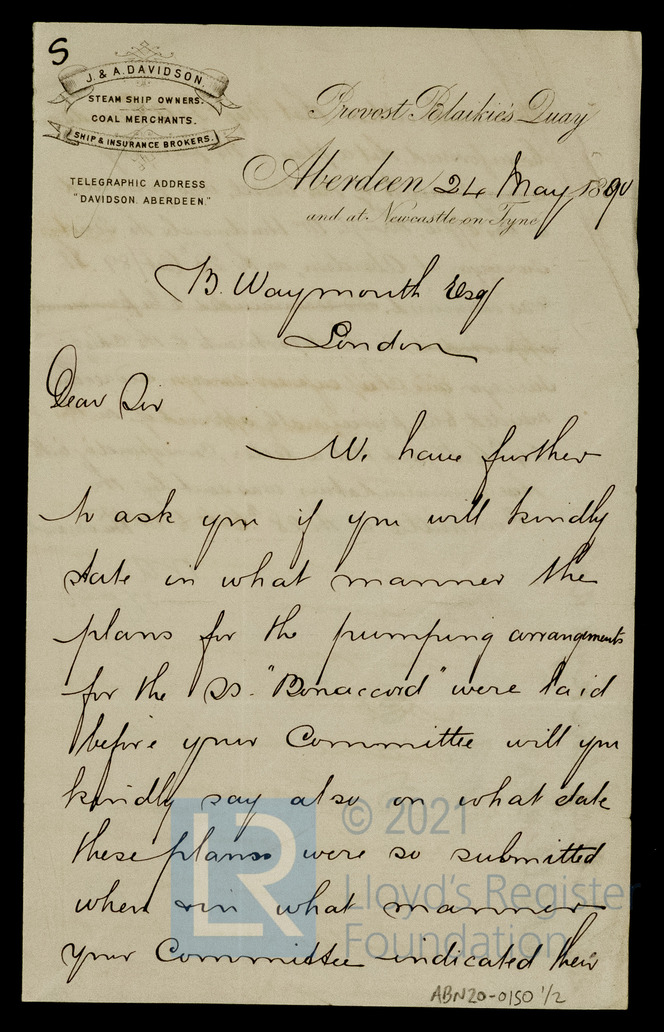 S
J. & A. DAVIDSON.
STEAM SHIP OWNERS.
COAL MERCHANTS.
SHIP & INSURANCE BROKERS.
TELEGRAPHIC ADDRESS
"DAVIDSON. ABERDEEN."
Provost Blaikie's Quay
Aberdeen 24 May 1890
and at Newcastle on Tyne
B. Waymouth Esq
London
Dear Sir
We have further
to ask you if you will kindly
state in what manner the
plans for the pumping arrangements
for the SS. "Bonaccord" were laid
before your Committee will you
kindly say also on what date
these plans were so submitted
when & in what manner
your Committee indicated their
© 2021
LR
Lloyd's Register
Foundation
ABN20-0150 1/2